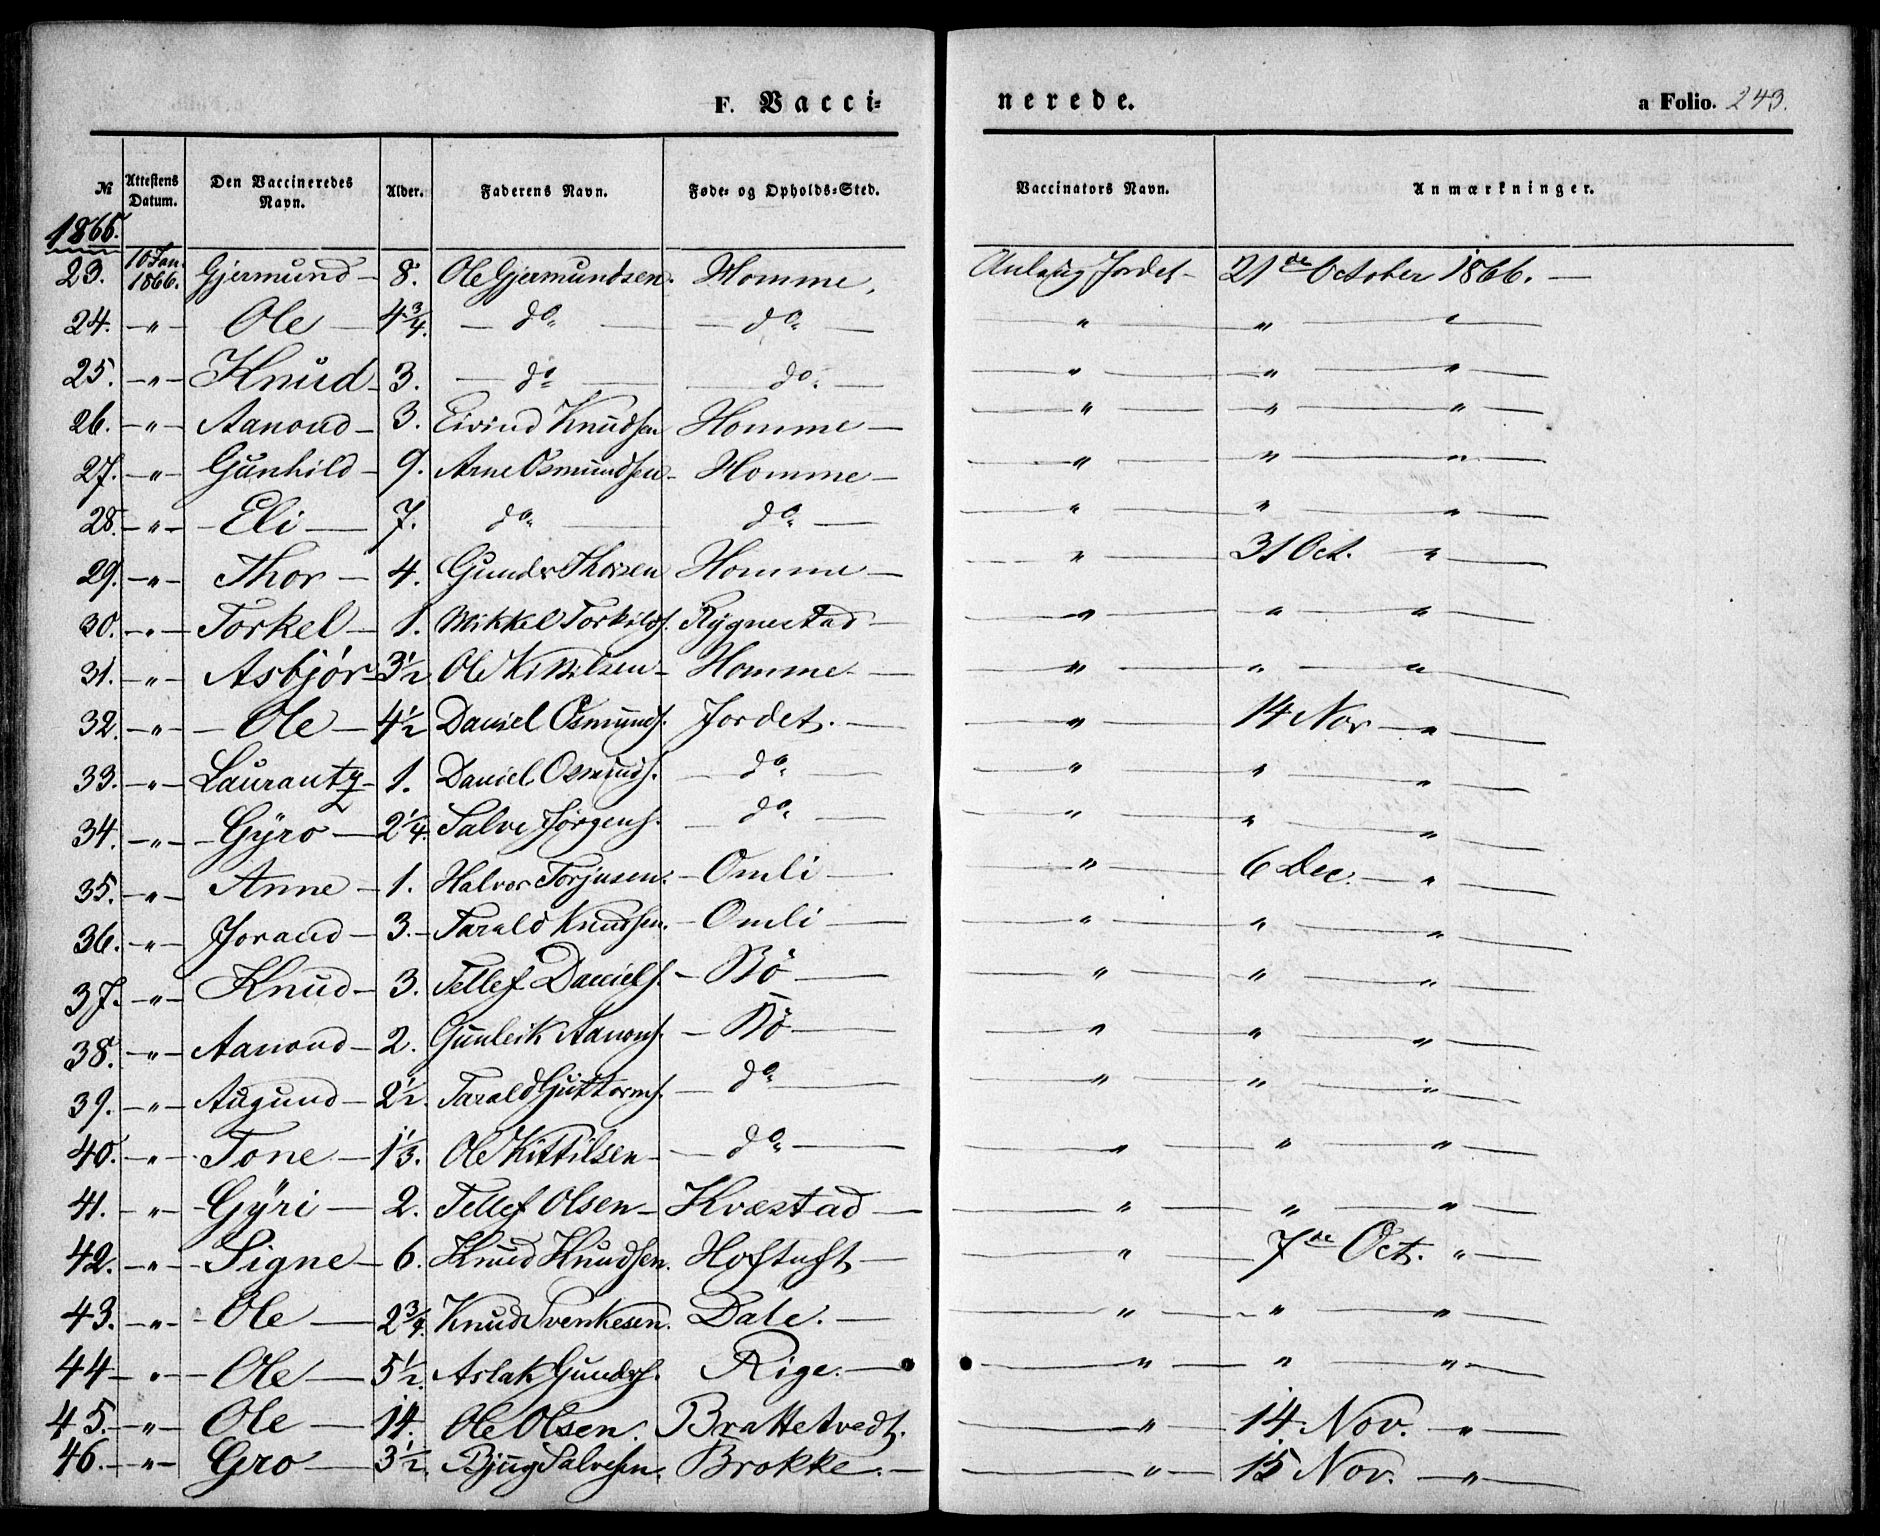 F. Vacci=
nerede.
a Folio. 243.
№ Attestens Datum. Den Vaccineredes Navn. Alder. Faderens Navn. Føde= og Opholds=Sted. Vaccinators Navn. Anmærkninger.
1866.
23. 10 Jan. 1866. Gjermund — 8. Ole Gjermundsen. Homme. Jordet — 21de October 1866. —
24. — " — Ole — 4 3/4. — do — — do — " — " — "
25. — " — Knud — 3. — do — — do. — " — " — "
26. — " — Aanond — 3. Eivind Knudsen Homme — " — " — "
27. — " — Gunhild — 9. Arne Osmundsen — Homme — " — " — "
28. — " — Eli — 7. do — do — " — " — "
29. — " — Thor — 4. Gunder Thorsen Homme — " — 31 Oct. "
30. — " — Torkel — 1. Mikkel Torkilds. Rygnestad — " — " — "
31. — " — Asbjør — 3 1/2 Ole Kittilsen — Homme — " — " — "
32. — " — Ole — 4 1/2 Daniel Osmunds. Jordet. — " — 14 Nov — "
33. — " — Laurantz — 1. Daniel Osmunds. — do — " — " — "
34. — " — Gyro — 2 1/4. Salve Jørgens. — do — " — " — "
35. — " — Anne — 1. Halvor Torjusen. — Omli — " — 6 Dec. — "
36. — " — Jorand — 3. — Tarald Knudsen. — Omli — " — " — "
37. — " — Knud — 3. Tellef Daniels. — Bö — " — " — "
38. — " — Aanond — 2. Gunleik Aanons. — Bö — " — " — "
39. — " — Augund — 2 1/2. Tarald Guttorms. — do — " — " — "
40. — " — Tone — 1 1/3. Ole Kittilsen — — do — " — " — "
41. — " — Gyri — 2. Tellef Olsen — Kvæstad — " — " — "
42. — " — Signe — 6. Knud Knudsen. Hoftuft — " — 7de Oct. "
43. — " — Ole — 2 3/4. Knud Svenkesen. Dale. — " — " — "
44 — " — Ole — 5 1/2. Aslak Gunders. Rige. — " — " — "
45. — " — Ole — 14. Ole Olsen. Brattetvedt. " — 14 Nov. — "
46. — " — Gro — 3 1/2. Bjug Salvesen. Brokke. — " — 15 Nov. — "